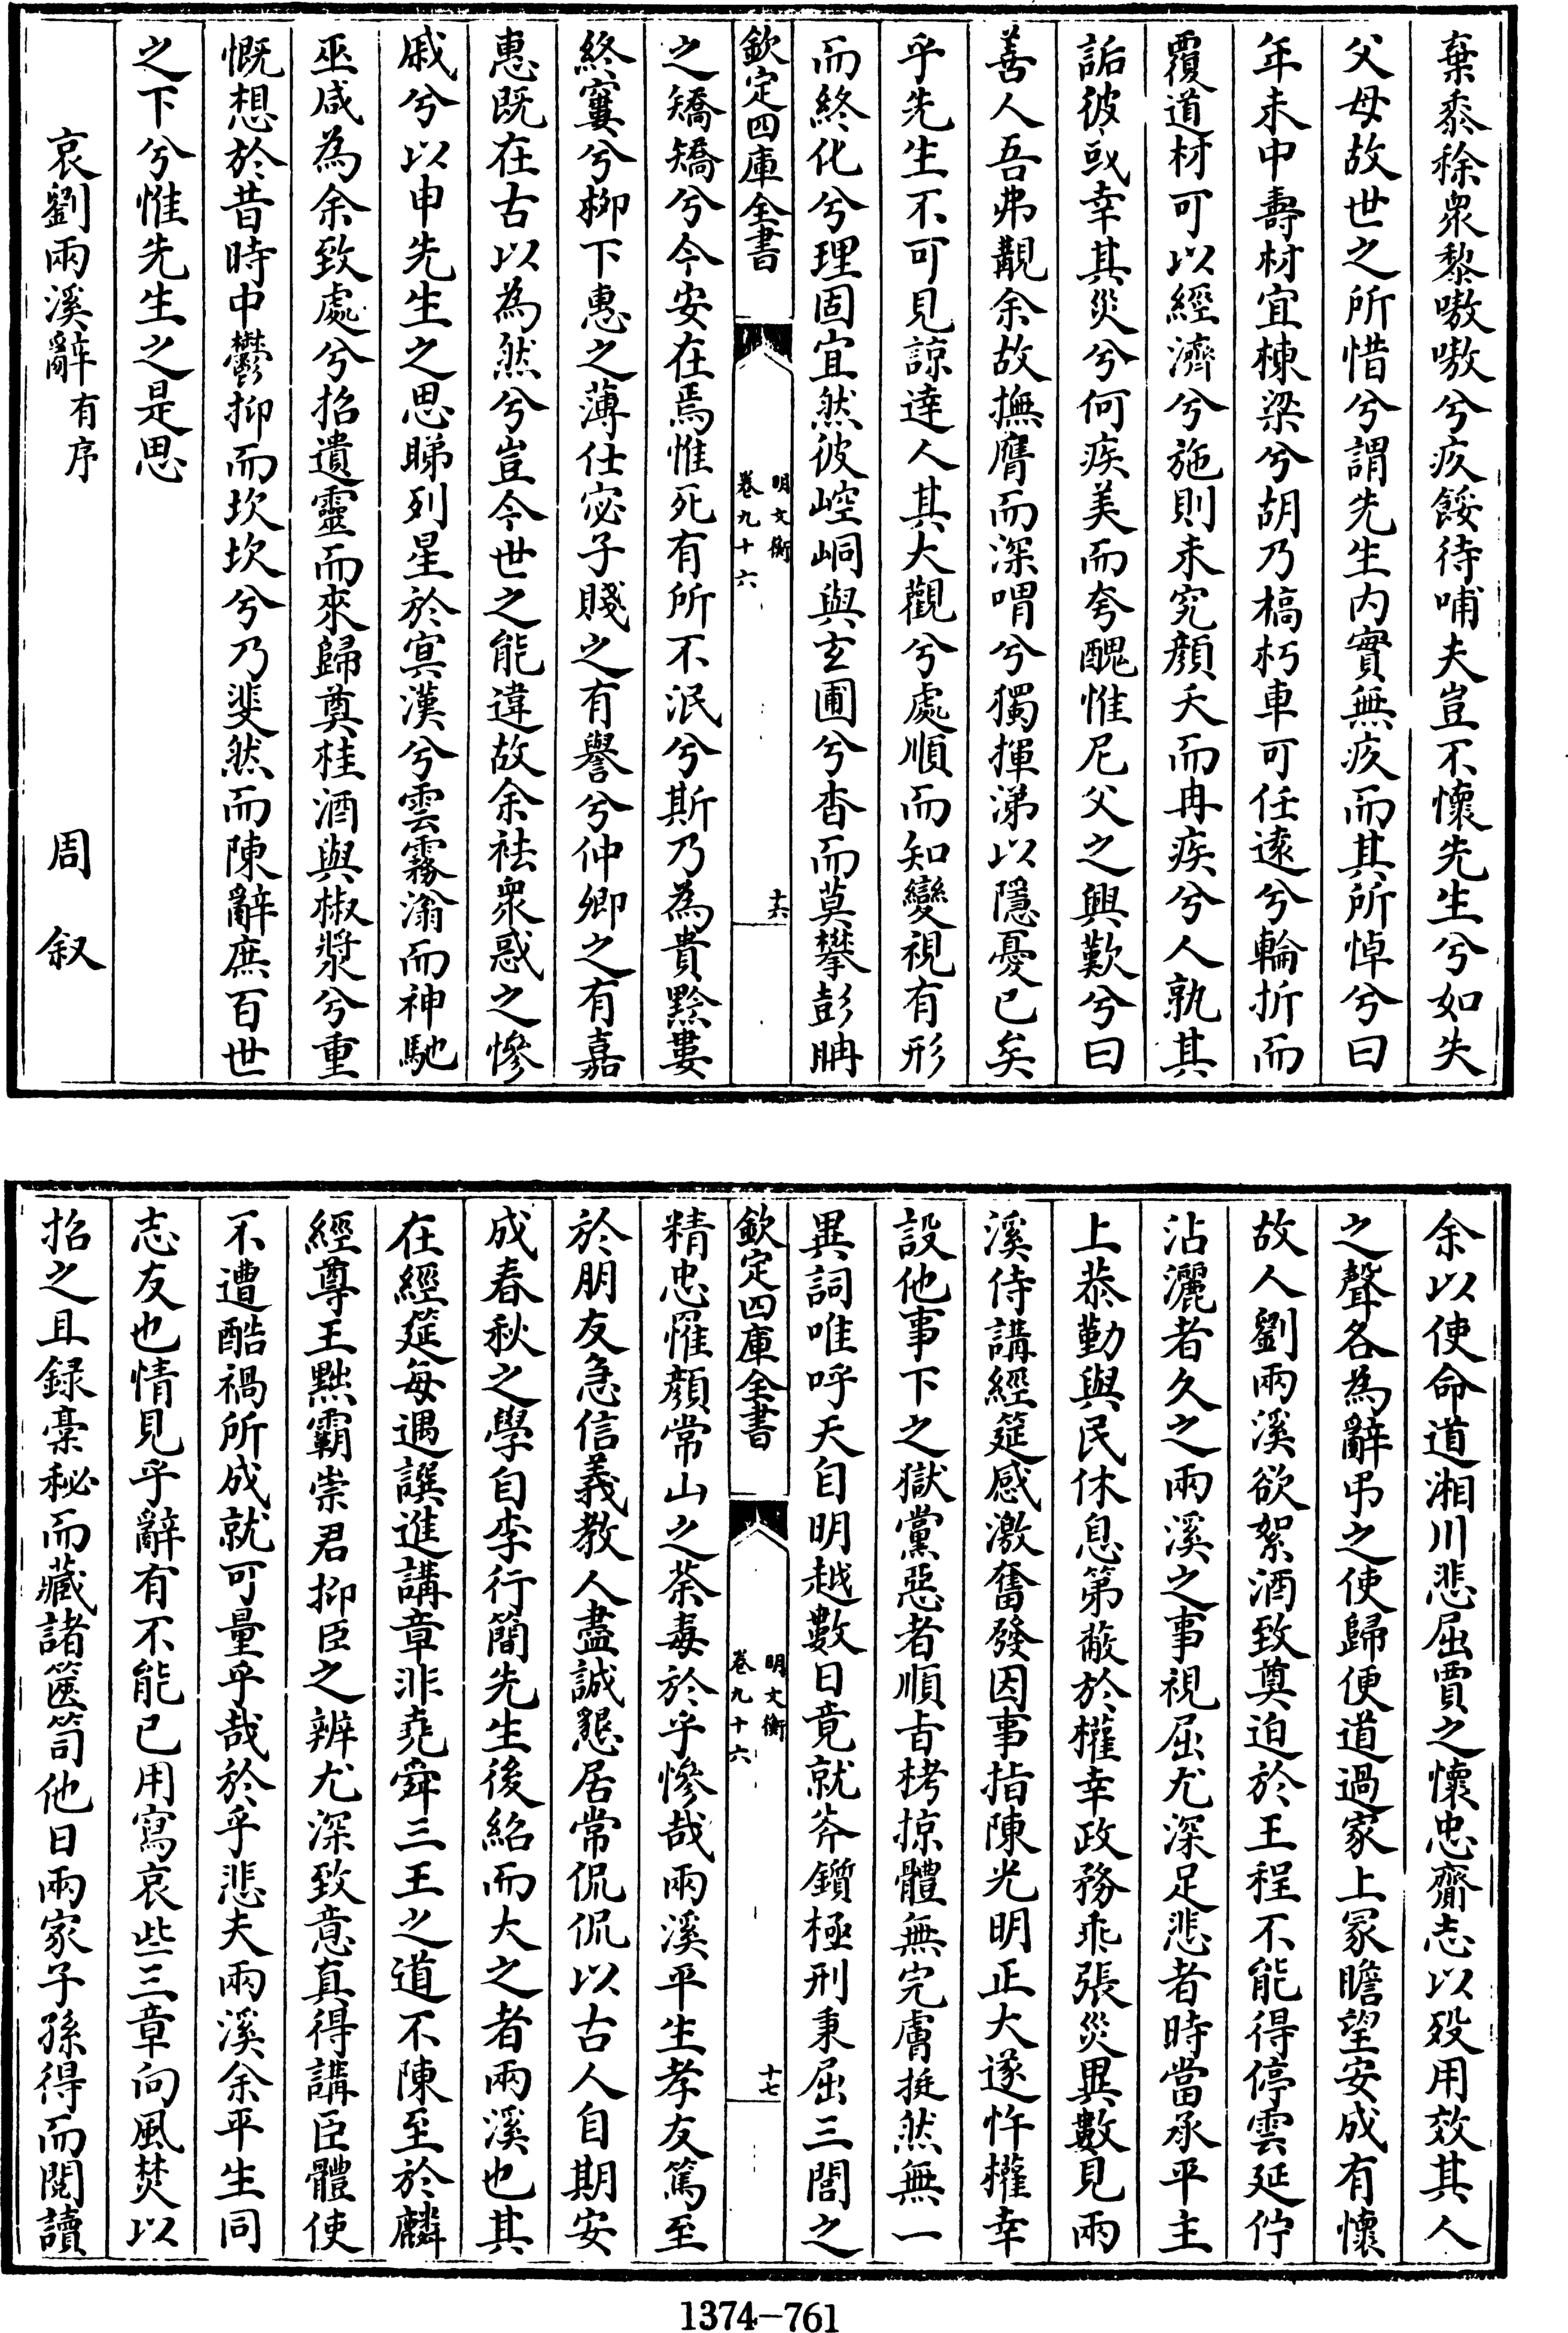 棄黍稌衆黎嗷嗷兮疚餒待哺夫豈不懷先生兮如失
父母故世之所惜兮謂先生内實無疚而其所悼兮曰
年未中壽材宜棟梁兮胡乃槁朽車可任逺兮輪折而
覆道材可以經濟兮施則未究顔夭而冉疾兮人孰其
詬彼或幸其災兮何疾美而夸醜惟尼父之興歎兮曰
善人吾弗覯余故撫膺而深喟兮獨揮涕以隱憂已矣
乎先生不可見諒達人其大觀兮處順而知變視有形
而終化兮理固宜然彼崆峒與玄圃兮杳而莫攀彭聃
欽定四庫全書
明文衡
卷九十六
十六
之矯矯兮今安在焉惟死有所不泯兮斯乃為貴黔婁
終窶兮柳下惠之薄仕宓子賤之有譽兮仲卿之有嘉
惠既在古以為然兮豈今世之能違故余袪衆惑之慘
戚兮以申先生之思睇列星於寘漢兮雲霧滃而神馳
巫咸為余致處兮招遺靈而來歸奠桂酒與椒漿兮重
慨想於昔時中鬱抑而坎坎兮乃斐然而陳辭庶百世
之下兮惟先生之是思
哀劉兩溪辭有序
周叙
余以使命道湘川悲屈賈之懷忠齎志以殁用效其人
之聲各為辭弔之使歸便道過家上冢瞻望安成有懷
故人劉兩溪欲絮酒致奠迫於王程不能得停雲延佇
沾灑者久之兩溪之事視屈尤深足悲者時當承平主
上恭勤與民休息第蔽於權幸政務乖張災異數見兩
溪侍講經筵感激奮發因事指陳光明正大遂忤權幸
設他事下之獄黨惡者順㫖栲掠體無完膚挺然無一
異詞唯呼天自明越數日竟就斧鑕極刑秉屈三閭之
欽定四庫全書
明文衡
卷九十六
十七
精忠罹顔常山之荼毒於乎慘哉兩溪平生孝友篤至
於朋友急信義教人盡誠懇居常侃侃以古人自期安
成春秋之學自李行簡先生後紹而大之者兩溪也其
在經筵每遇譔進講章非堯舜三王之道不陳至於麟
經尊王黜霸崇君抑臣之辨尤深致意真得講臣體使
不遭酷禍所成就可量乎哉於乎悲夫兩溪余平生同
志友也情見乎辭有不能已用寫哀些三章向風焚以
招之且録槀秘而藏諸篋笥他日兩家子孫得而閱讀
1374-761